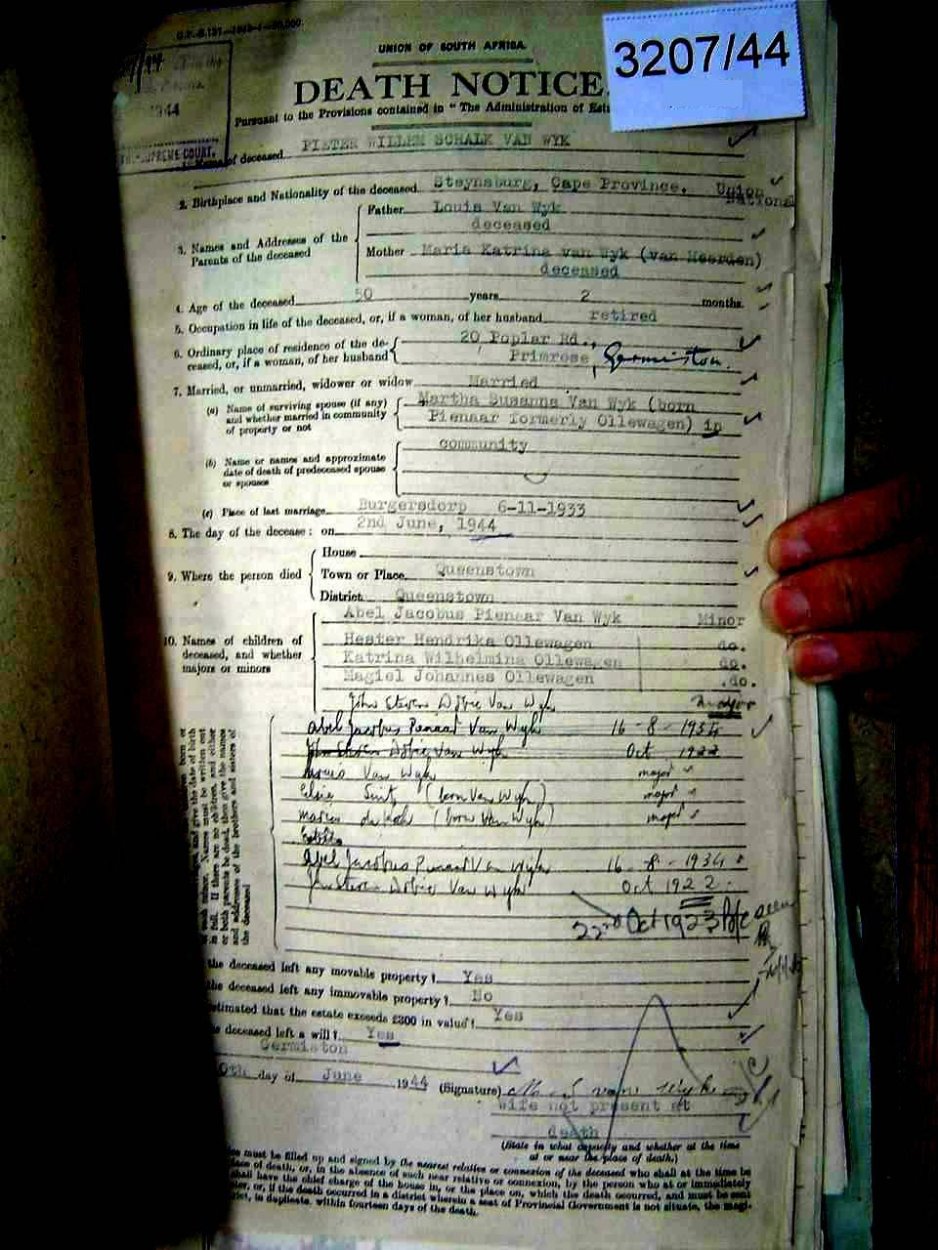 3207/44
UNION OF SOUTH AFRICA.
DEATH NOTICE.
Pursuant to the Provisions contained in "The Administration of
944
SUPREME COURT.
of deceased PIETER WILLEM SCHALK VAN WYK
2. Birthplace and Nationality of the deceased Steynsburg, Cape Province. Union National
3. Names and Addresses of the Parents of the deceased
Father Louis Van Wyk
deceased
Mother Maria Katrina van Wyk (van Heerden)
deceased
4. Age of the deceased 50 years 2 months.
5. Occupation in life of the deceased, or, if a woman, of her husband retired
6. Ordinary place of residence of the deceased, or, if a woman, of her husband
20 Poplar Rd.,
Primrose, Germiston.
7. Married, or unmarried, widower or widow Married
(a) Name of surviving spouse (if any) and whether married in community of property or not
Martha Susanna Van Wyk (born
Pienaar formerly Ollewagen) in
community
(b) Name or names and approximate date of death of predeceased spouse or spouses
(c) Place of last marriage Burgersdorp 6-11-1933
8. The day of the decease: on 2nd June, 1944
9. Where the person died
House
Town or Place Queenstown
District Queenstown
10. Names of children of deceased, and whether majors or minors
Abel Jacobus Pienaar Van Wyk Minor
Hester Hendrika Ollewagen do.
Katrina Wilhelmina Ollewagen do.
Magiel Johannes Ollewagen do.
John Steven Van Wyk
Abel Jacobus Van Wyk 16-8-1934
Van Wyk Oct 1922
Van Wyk major
(born Van Wyk) major
(born Van Wyk) major
Abel Jacobus Van Wyk 16-8-1934
Van Wyk Oct 1922
22nd Oct 1923
and give the date of birth
minor. Names must be written out
in full. If there are no children, and either
or both parents be dead, then give the names
and addresses of the brothers and sisters of
the deceased
the deceased left any movable property? Yes
the deceased left any immovable property? No
estimated that the estate exceeds £300 in value? Yes
deceased left a will? Yes
Germiston
day of June 1944 (Signature) M. S. van Wyk
wife not present at
death
(State in what capacity and whether at the time
at or near the place of death.)
must be filled up and signed by the nearest relative or connexion of the deceased who shall at the time be
place of death, or, in the absence of such near relative or connexion, by the person who at or immediately
shall have the chief charge of the house in, or the place on, which the death occurred, and must be sent
or, if the death occurred in a district wherein a seat of Provincial Government is not situate, the
in duplicate, within fourteen days of the death.